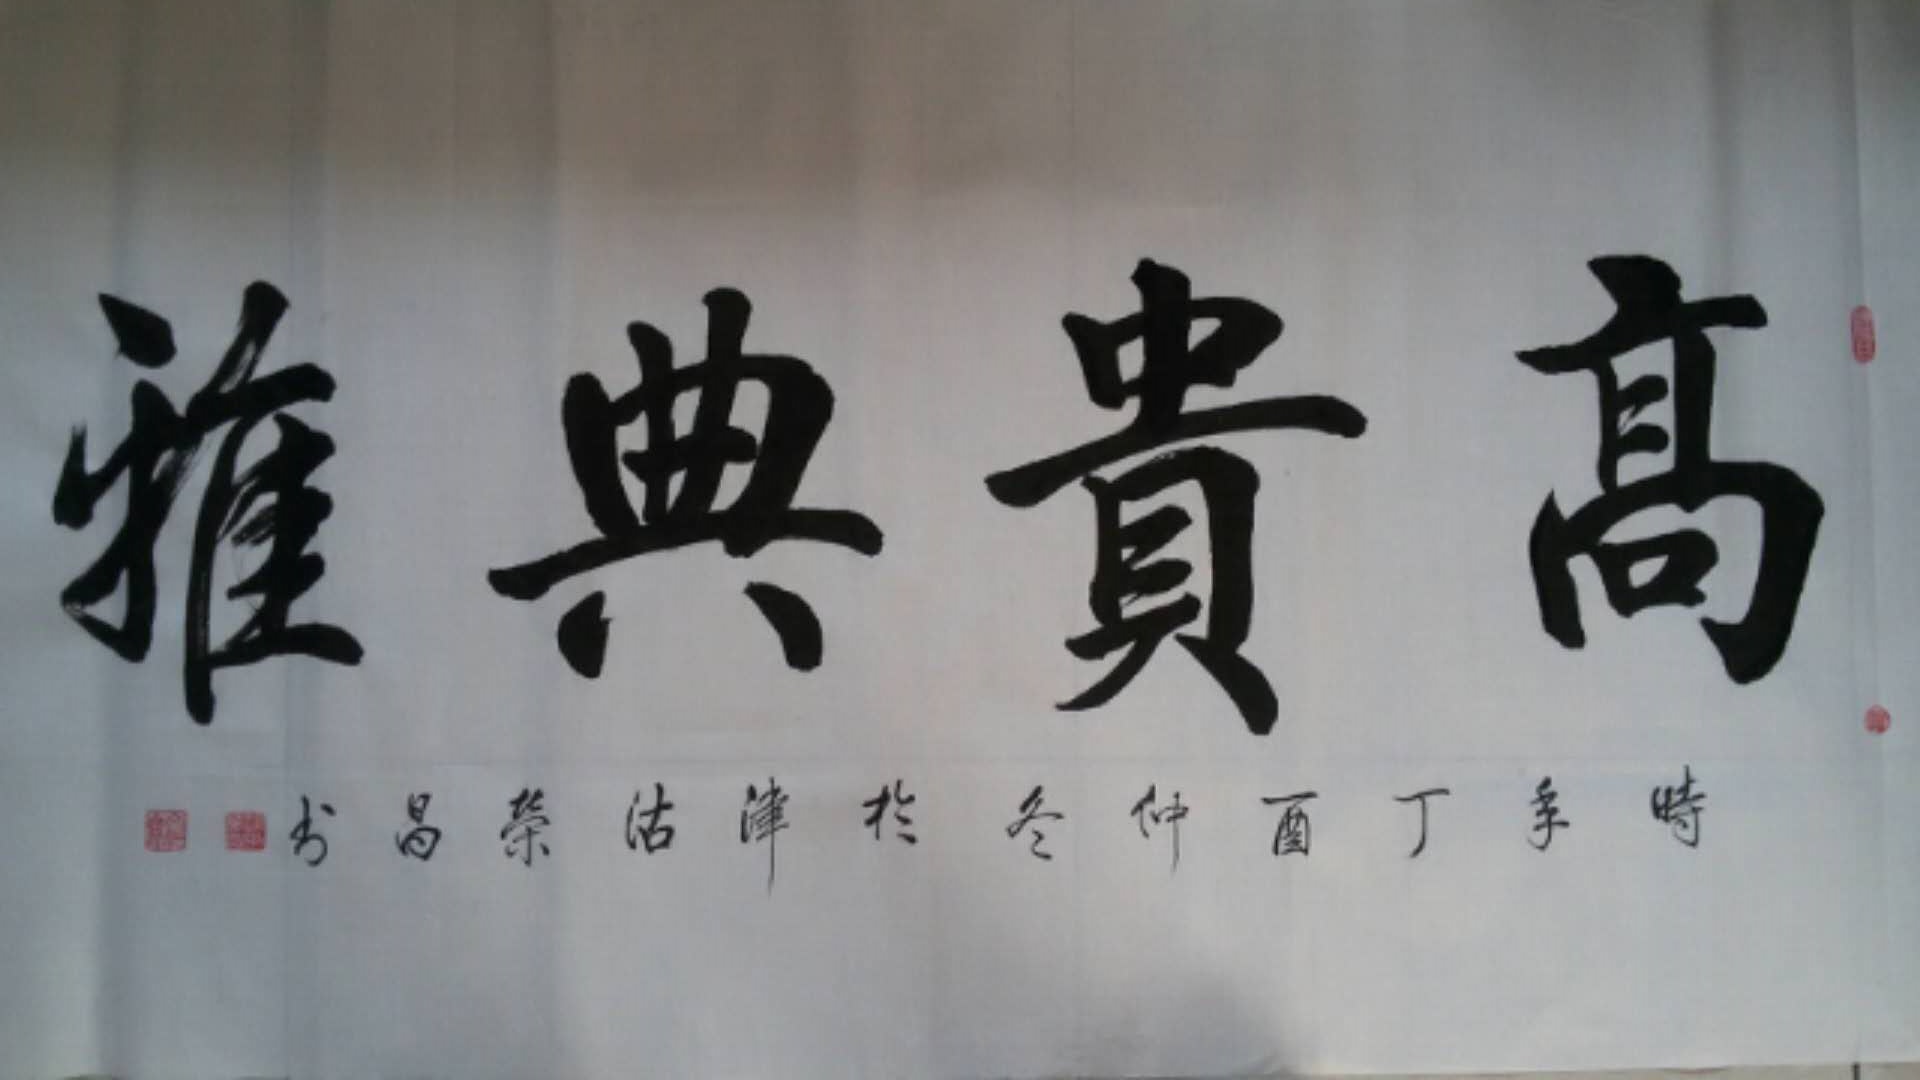 高貴典雅
時年丁酉仲冬於津沽榮昌书